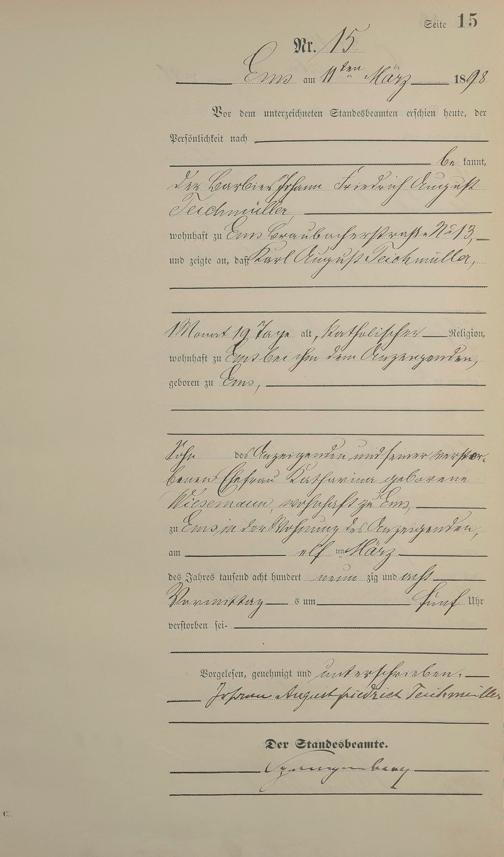 Seite 15
Nr. 15
Ems am 11ten März 1898
Vor dem unterzeichneten Standesbeamten erschien heute, der
Persönlichkeit nach
be kannt,
der Barbier Johann Friedrich August
Teichmüller
wohnhaft zu Ems Braubacherstraße No 13,
und zeigte an, daß Karl August Teichmüller,
1 Monat 19 Tage alt, Katholischer Religion,
wohnhaft zu Ems bei ihm dem Anzeigenden,
geboren zu Ems,
Sohn des Anzeigenden und seiner verstor-
benen Ehefrau Katharina geborene
Wiesemann, wohnhaft zu Ems,
zu Ems in der Wohnung des Anzeigenden,
am elf ten März
des Jahres tausend acht hundert neun zig und acht
Vormittag s um fünf Uhr
verstorben sei.
Vorgelesen, genehmigt und unterschrieben.
Johann August Friedrich Teichmüller
Der Standesbeamte.
Spangenberg
C.